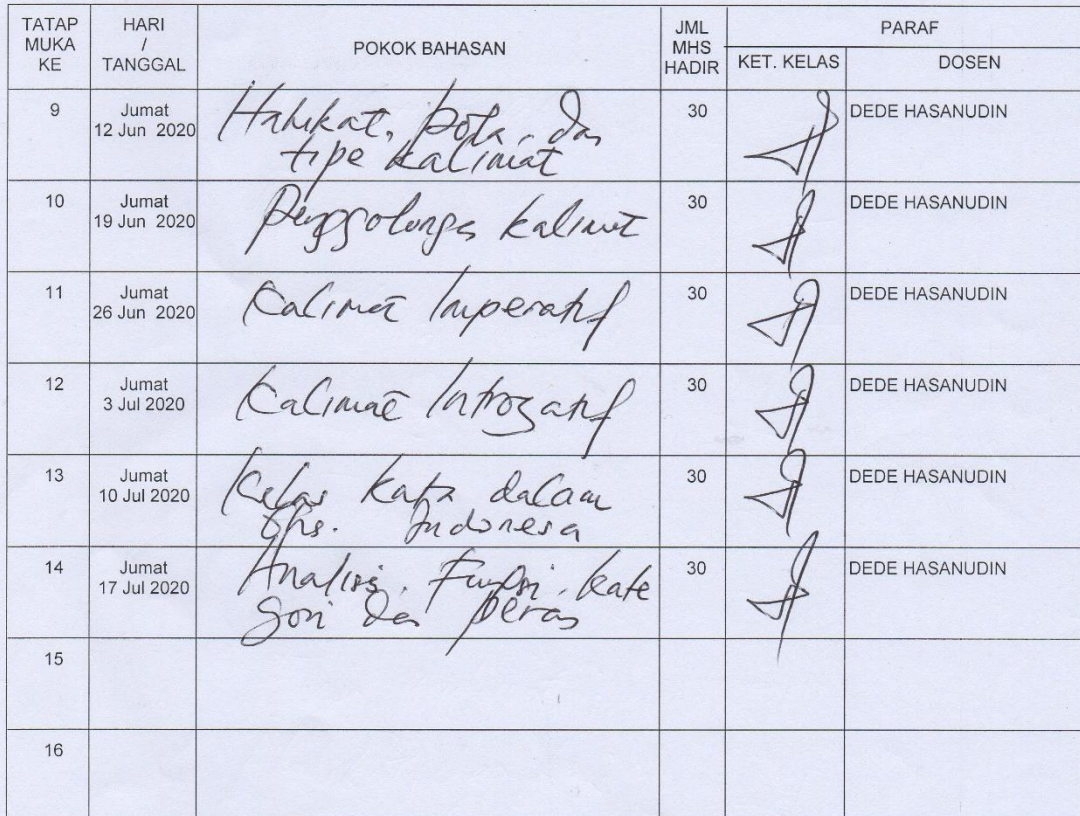 TATAP MUKA KE HARI / TANGGAL POKOK BAHASAN JML MHS HADIR PARAF
KET. KELAS DOSEN
9 Jumat 12 Jun 2020 Hakikat, pola, dan 30 DEDE HASANUDIN
tipe kalimat
10 Jumat 19 Jun 2020 Penggolongan kalimat 30 DEDE HASANUDIN
11 Jumat 26 Jun 2020 Kalimat Imperatif 30 DEDE HASANUDIN
12 Jumat 3 Jul 2020 Kalimat Introgatif 30 DEDE HASANUDIN
13 Jumat 10 Jul 2020 Kelas kata dalam 30 DEDE HASANUDIN
bhs. Indonesia
14 Jumat 17 Jul 2020 Analisis, Fungsi, kate 30 DEDE HASANUDIN
gori dan peran
15
16